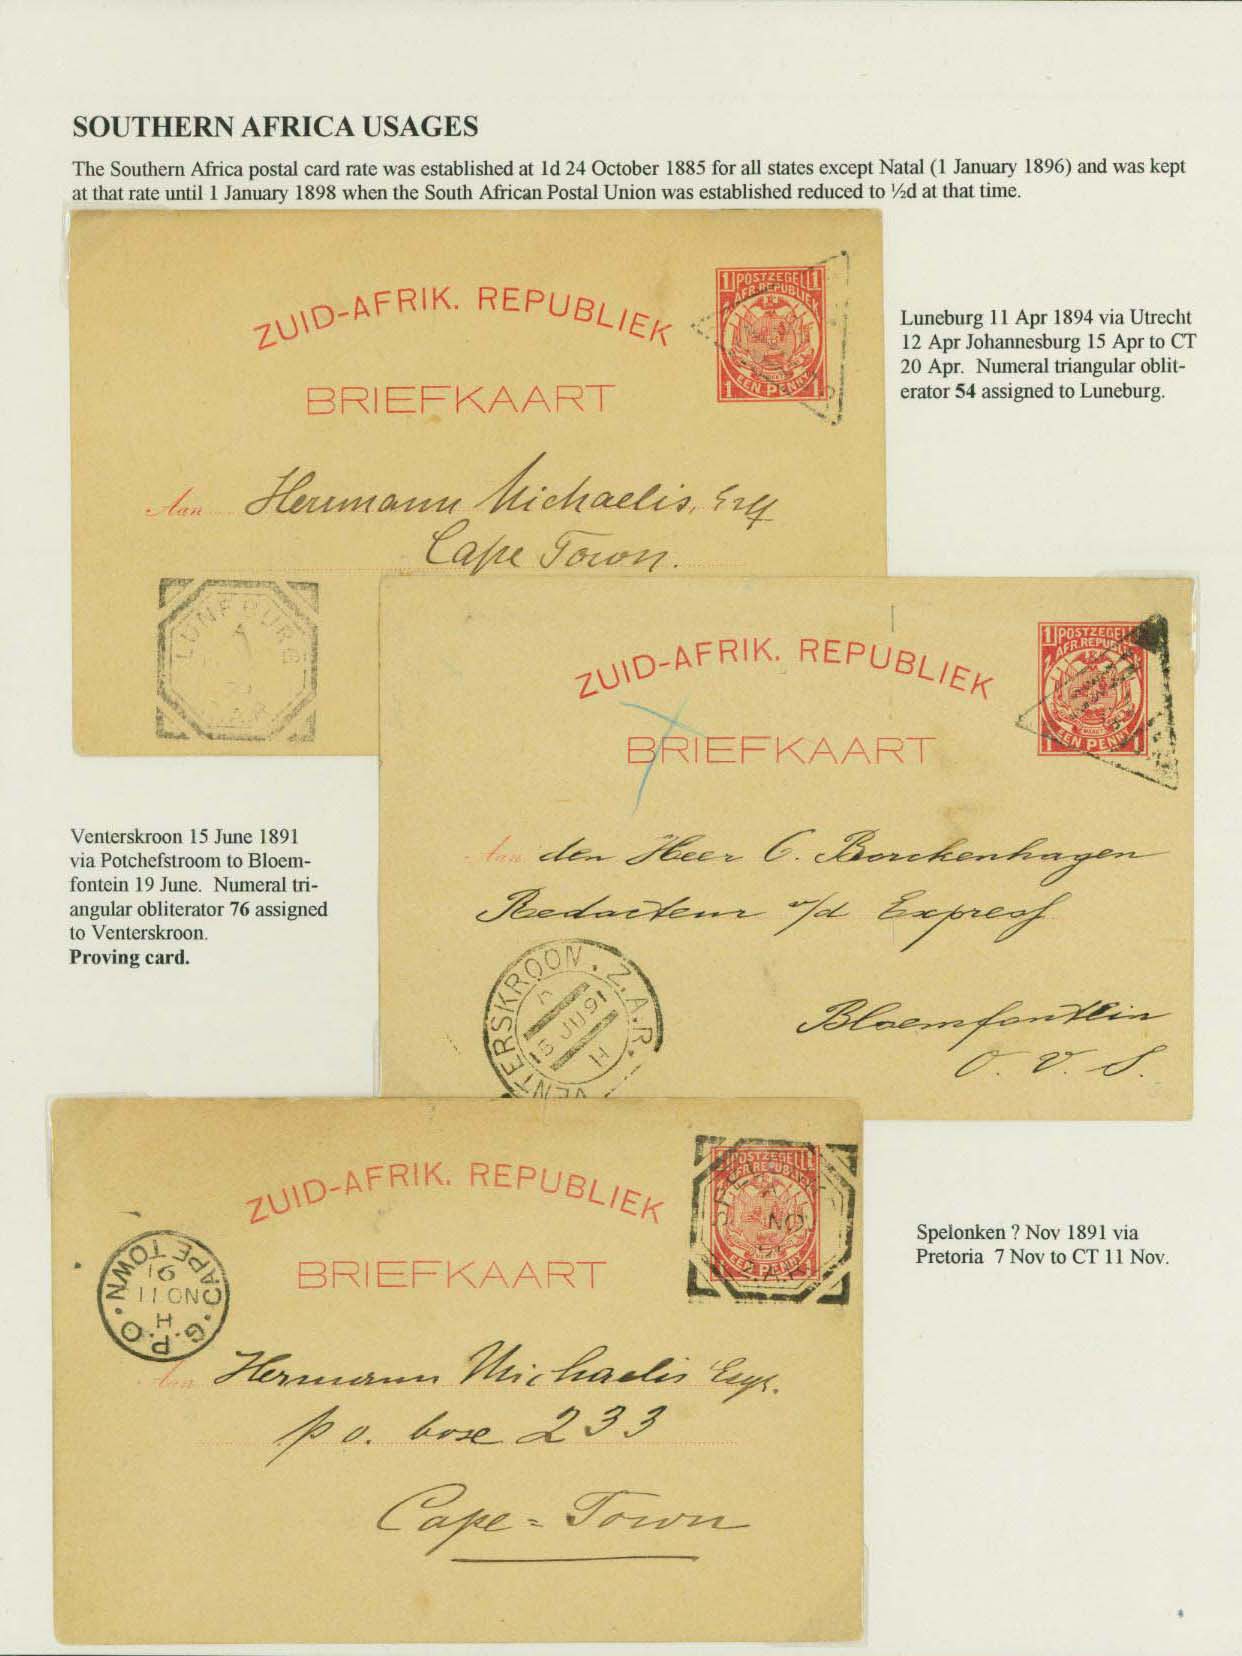 SOUTHERN AFRICA USAGES
The Southern Africa postal card rate was established at 1d 24 October 1885 for all states except Natal (1 January 1896) and was kept
at that rate until 1 January 1898 when the South African Postal Union was established reduced to ½d at that time.
ZUID-AFRIK. REPUBLIEK
BRIEFKAART
1 POSTZEGEL 1
Z. AFR. REPUBLIEK
1 EEN PENNY 1
Aan Herrmann Michaelis, Esq
Cape Town.
LUNEBURG
Z.A.R.
Luneburg 11 Apr 1894 via Utrecht
12 Apr Johannesburg 15 Apr to CT
20 Apr. Numeral triangular oblit-
erator 54 assigned to Luneburg.
ZUID-AFRIK. REPUBLIEK
BRIEFKAART
1 POSTZEGEL
Z. AFR. REPUBL
1 EEN PENNY 1
Aan den Heer C. Borckenhagen
Redacteur v/d Express
Bloemfontein
O. V. S.
VENTERSKROON . Z.A.R.
A
15 JU 91
H
Venterskroon 15 June 1891
via Potchefstroom to Bloem-
fontein 19 June. Numeral tri-
angular obliterator 76 assigned
to Venterskroon.
Proving card.
ZUID-AFRIK. REPUBLIEK
BRIEFKAART
POSTZEGEL
AFR. REPUBLI
EEN PENNY
NO
Z.A.R.
G.P.O. CAPE TOWN
H
NO 11
91
Aan Hermann Michaelis Esqr.
p o. boxe 233
Cape=Town
Spelonken ? Nov 1891 via
Pretoria 7 Nov to CT 11 Nov.